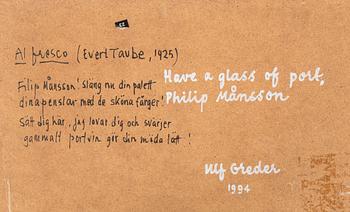 52
Al fresco (Evert Taube, 1925)
Filip Månsson! Släng nu din palett
dina penslar med de sköna färger!
Sätt dig här, jag lovar dig och svärjer
gammalt portvin gör din möda lätt!
Have a glass of port,
Philip Månsson
Ulf Greder
1994